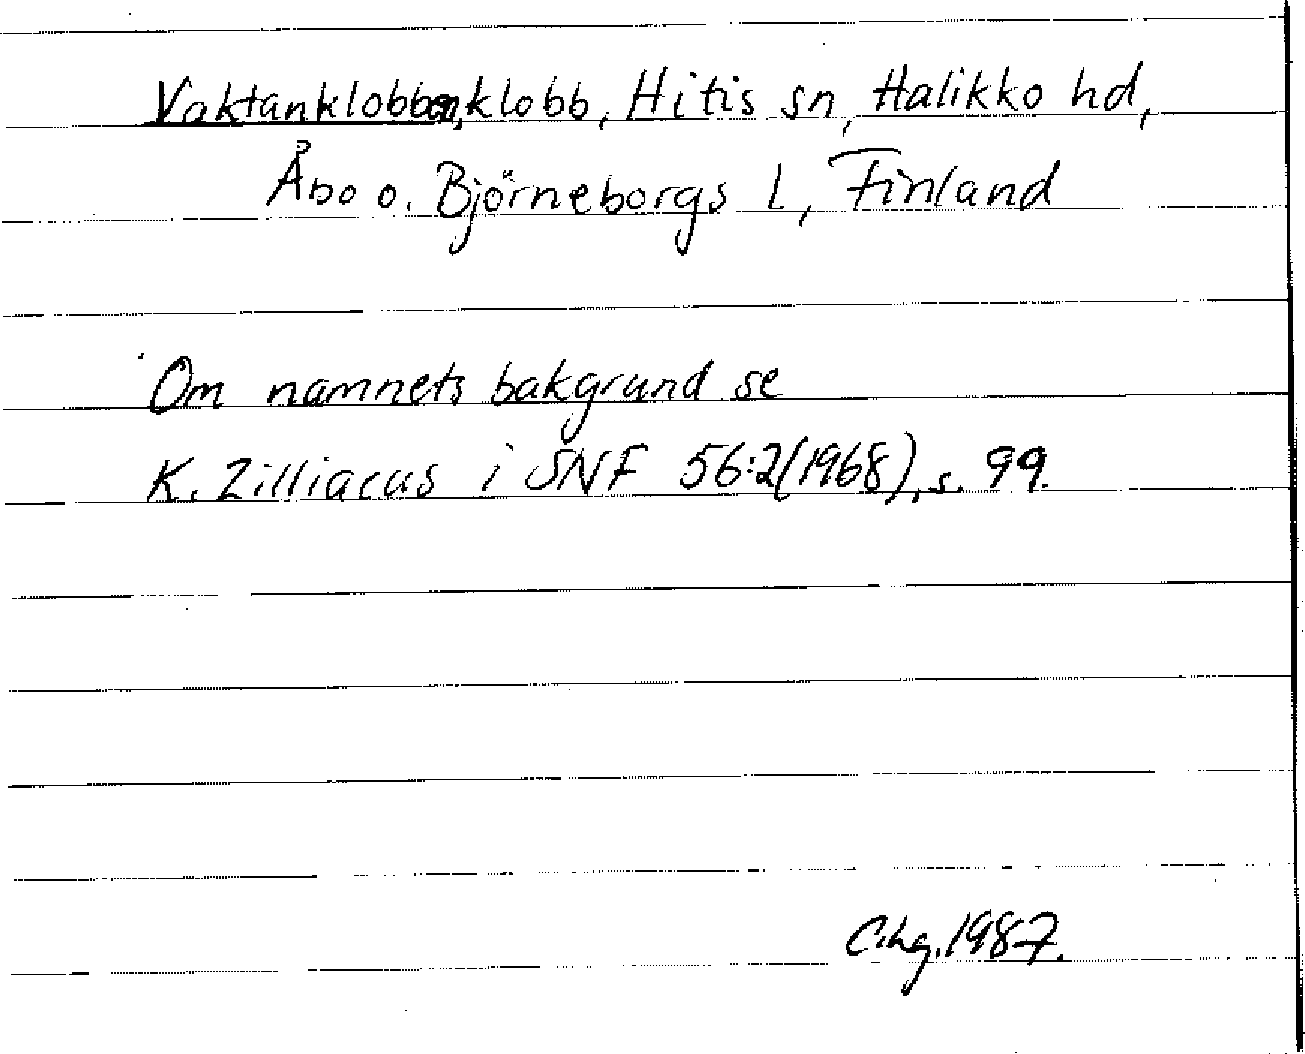 Vaktanklobben, klobb, Hitis sn, Halikko hd,
Åbo o. Björneborgs l, Finland
Om namnets bakgrund se
K. Zilliacus i SNF 56:2(1968), s. 99.
C.hg. 1987.